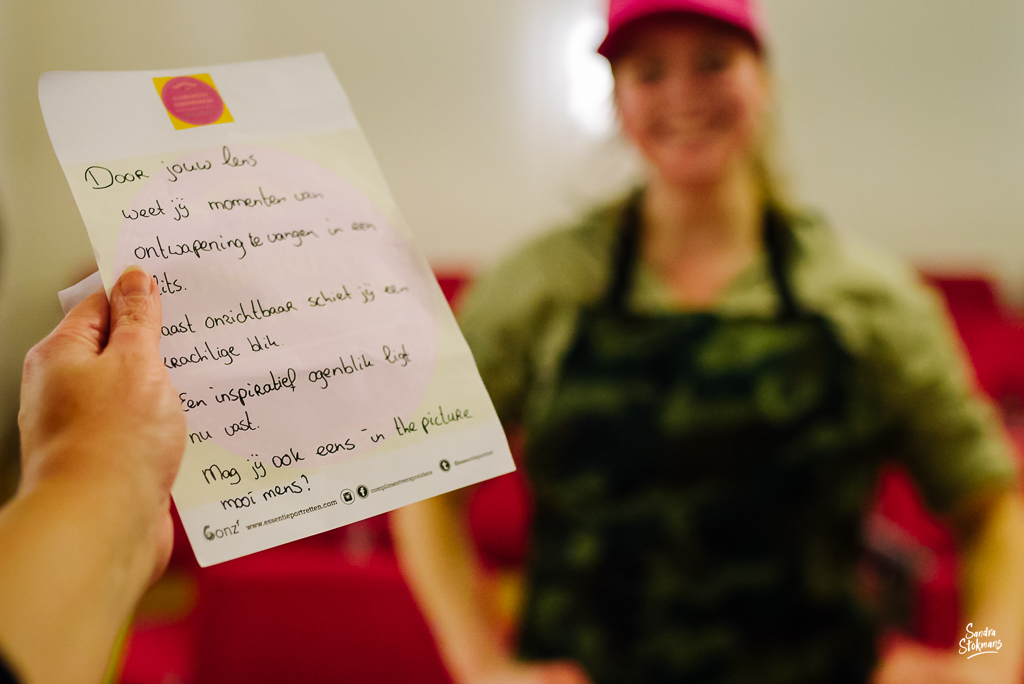 Door jouw lens
weet jij momenten van
ontwapening te vangen in een
lits.
aast onzichtbaar schiet jij een
krachtige blik.
Een inspiratief ogenblik ligt
nu vast.
Mag jij ook eens in the picture
mooi mens?
Gonz'
www.essentieportretten.com
Sandra
Stokmans